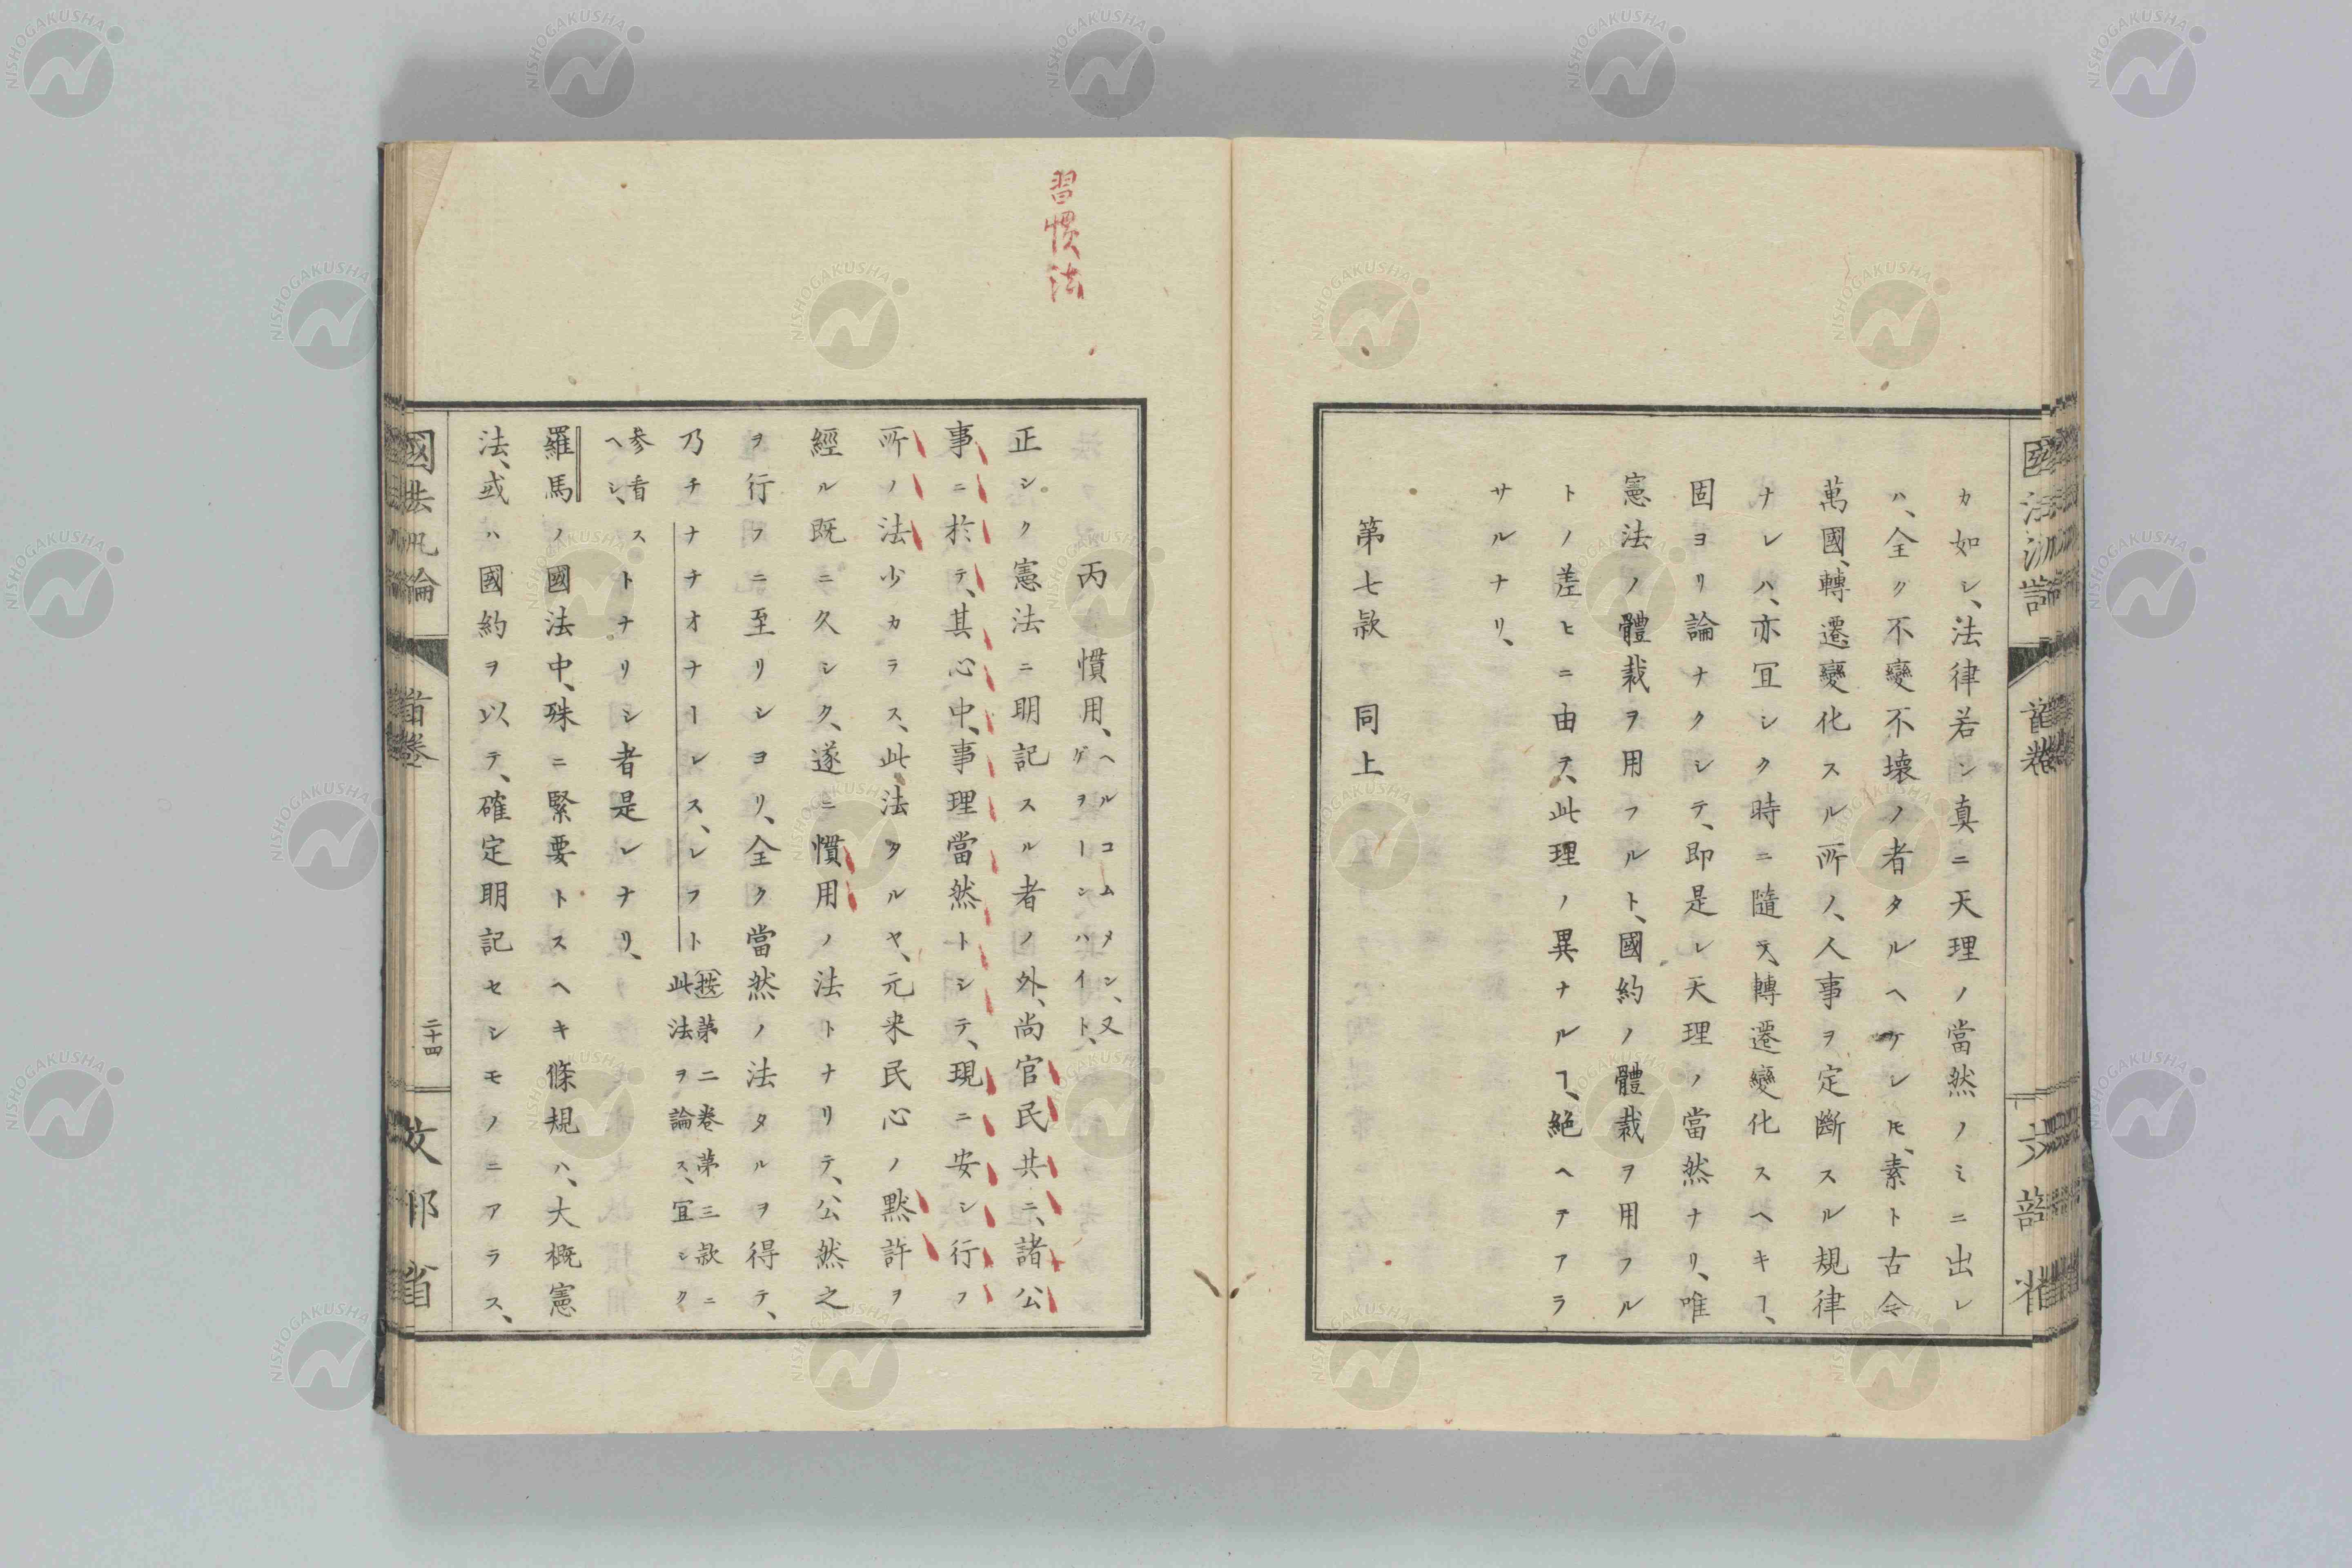 カ如シ、法律若シ真ニ天理ノ當然ノミニ出レ
ハ、全ク不變不壞ノ者タルヘケレ𪜈、素ト古今
萬國、轉遷變化スル所ノ、人事ヲ定斷スル規律
ナレハ、亦宜シク時ニ隨テ、轉遷變化スヘキヿ、
固ヨリ論ナクシテ、即是レ天理ノ當然ナリ、唯
憲法ノ體裁ヲ用フルト、國約ノ體裁ヲ用フル
トノ差ヒニ由テ、此理ノ異ナルヿ、絶ヘテアラ
サルナリ、
第七款 同上
習慣法
丙 慣用、ヘルコムメン、又
ゲヲーンハイト、
正シク憲法ニ明記スル者ノ外、尚官民共ニ、諸公
事ニ於テ、其心中、事理當然トシテ、現ニ安シ行フ
所ノ法少カラス、此法タルヤ、元来民心ノ黙許ヲ
經ル既ニ久シク、遂ニ慣用ノ法トナリテ、公然之
ヲ行フニ至リシヨリ、全ク當然ノ法タルヲ得テ、
乃チナチオナーレス、レフト 按第二巻第三款ニ
此法ヲ論ス、宜シク
参看
ヘシ、
ストナリシ者是レナリ、
羅馬ノ國法中、殊ニ緊要トスヘキ條規ハ、大概憲
法、或ハ國約ヲ以テ、確定明記セシモノニアラス、
國法汎論
首巻
二十四
文部省